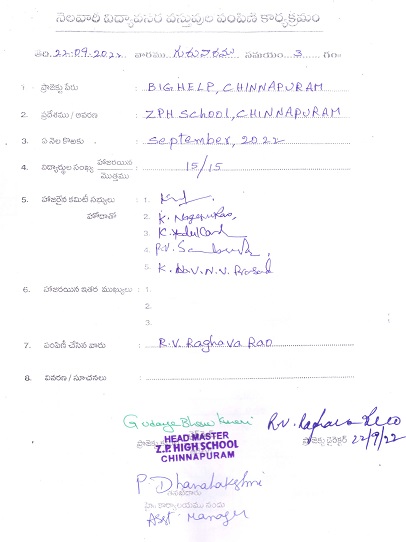 నెలవారీ విద్యావసర వస్తువుల పంపిణీ కార్యక్రమం
తేది. 22-09-2022 వారము గురువారము సమయం 3 గం॥
1 ప్రాజెక్టు పేరు : BIG HELP, CHINNAPURAM
2. ప్రదేశము / ఆవరణ : ZPH School, CHINNAPURAM
3. ఏ నెల కొఱకు : September, 2022
4. విద్యార్థుల సంఖ్య హాజరయిన / మొత్తము : 15/15
5. హాజరైన కమిటీ సభ్యులు : 1.
హోదాతో 2. K. Nageswara Rao,
3.
4. P.V.
5. K. V.N.V. Prasad
6. హాజరయిన ఇతర ముఖ్యులు : 1.
2.
3.
7. పంపిణీ చేసిన వారు : R.V. Raghava Rao
8. వివరణ / సూచనలు :
R.V. Raghava Rao
ప్రాజెక్టు డైరెక్టర్ 22/9/22
HEAD MASTER
Z.P. HIGH SCHOOL
CHINNAPURAM
P Dhanalakshmi
Asst Manager